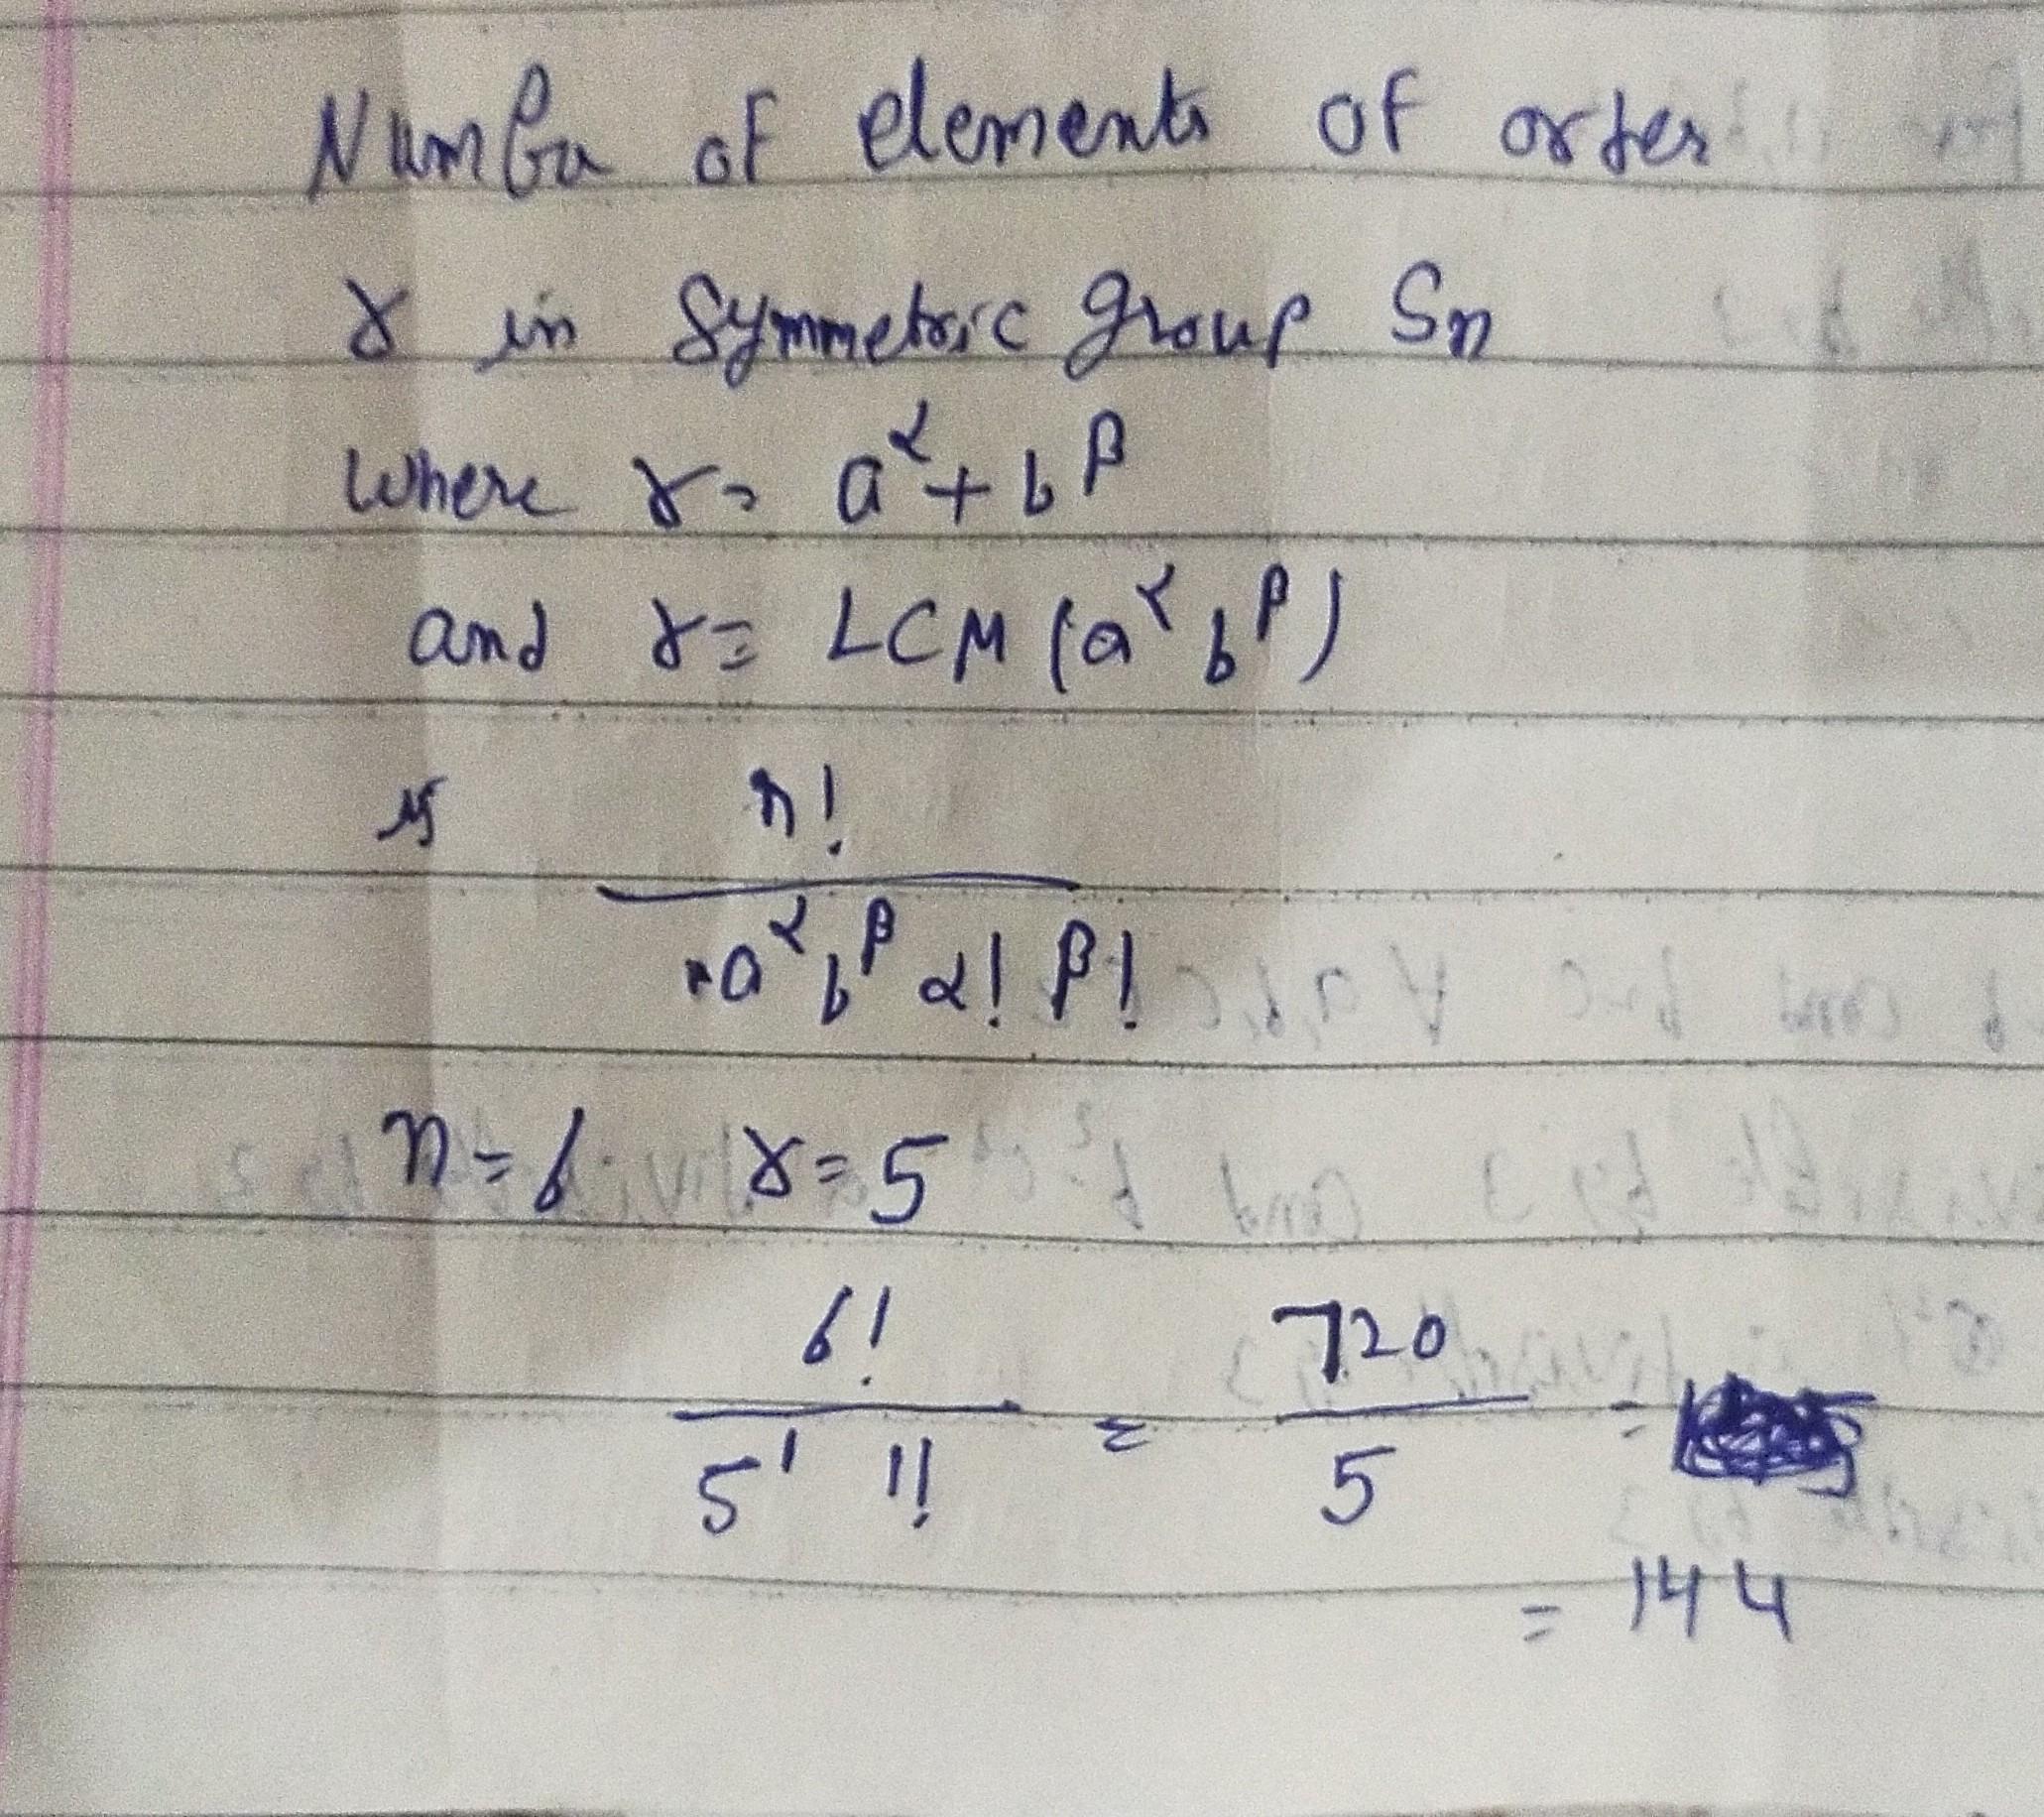 Number of elements of order
r in Symmetric group Sn
where r = a^α + b^β
and r = LCM (a^α b^β)
is n!
a^α b^β α! β!
n = 6 r = 5
6! 720
5^1 1! = 5 =
= 144